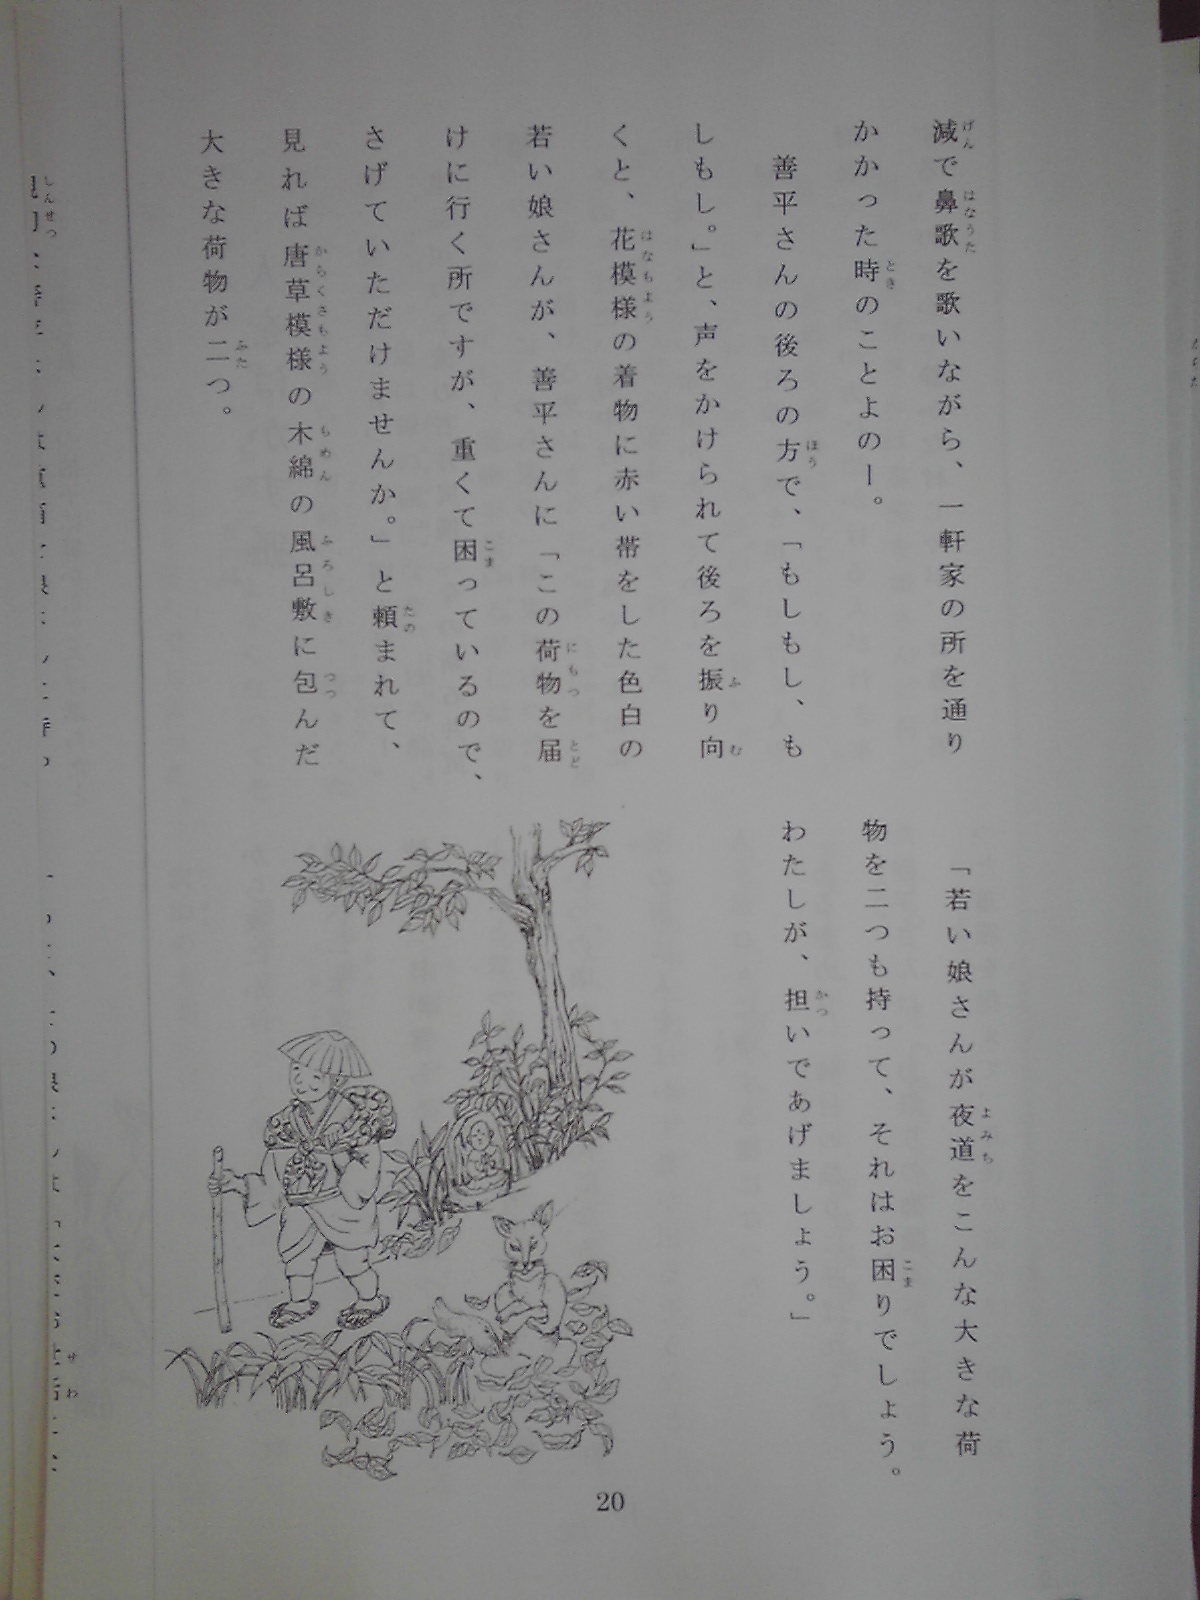 減で鼻歌を歌いながら、一軒家の所を通り
かかった時のことよのー。
善平さんの後ろの方で、「もしもし、も
しもし。」と、声をかけられて後ろを振り向
くと、花模様の着物に赤い帯をした色白の
若い娘さんが、善平さんに「この荷物を届
けに行く所ですが、重くて困っているので、
さげていただけませんか。」と頼まれて、
見れば唐草模様の木綿の風呂敷に包んだ
大きな荷物が二つ。
「若い娘さんが夜道をこんな大きな荷
物を二つも持って、それはお困りでしょう。
わたしが、担いであげましょう。」
20